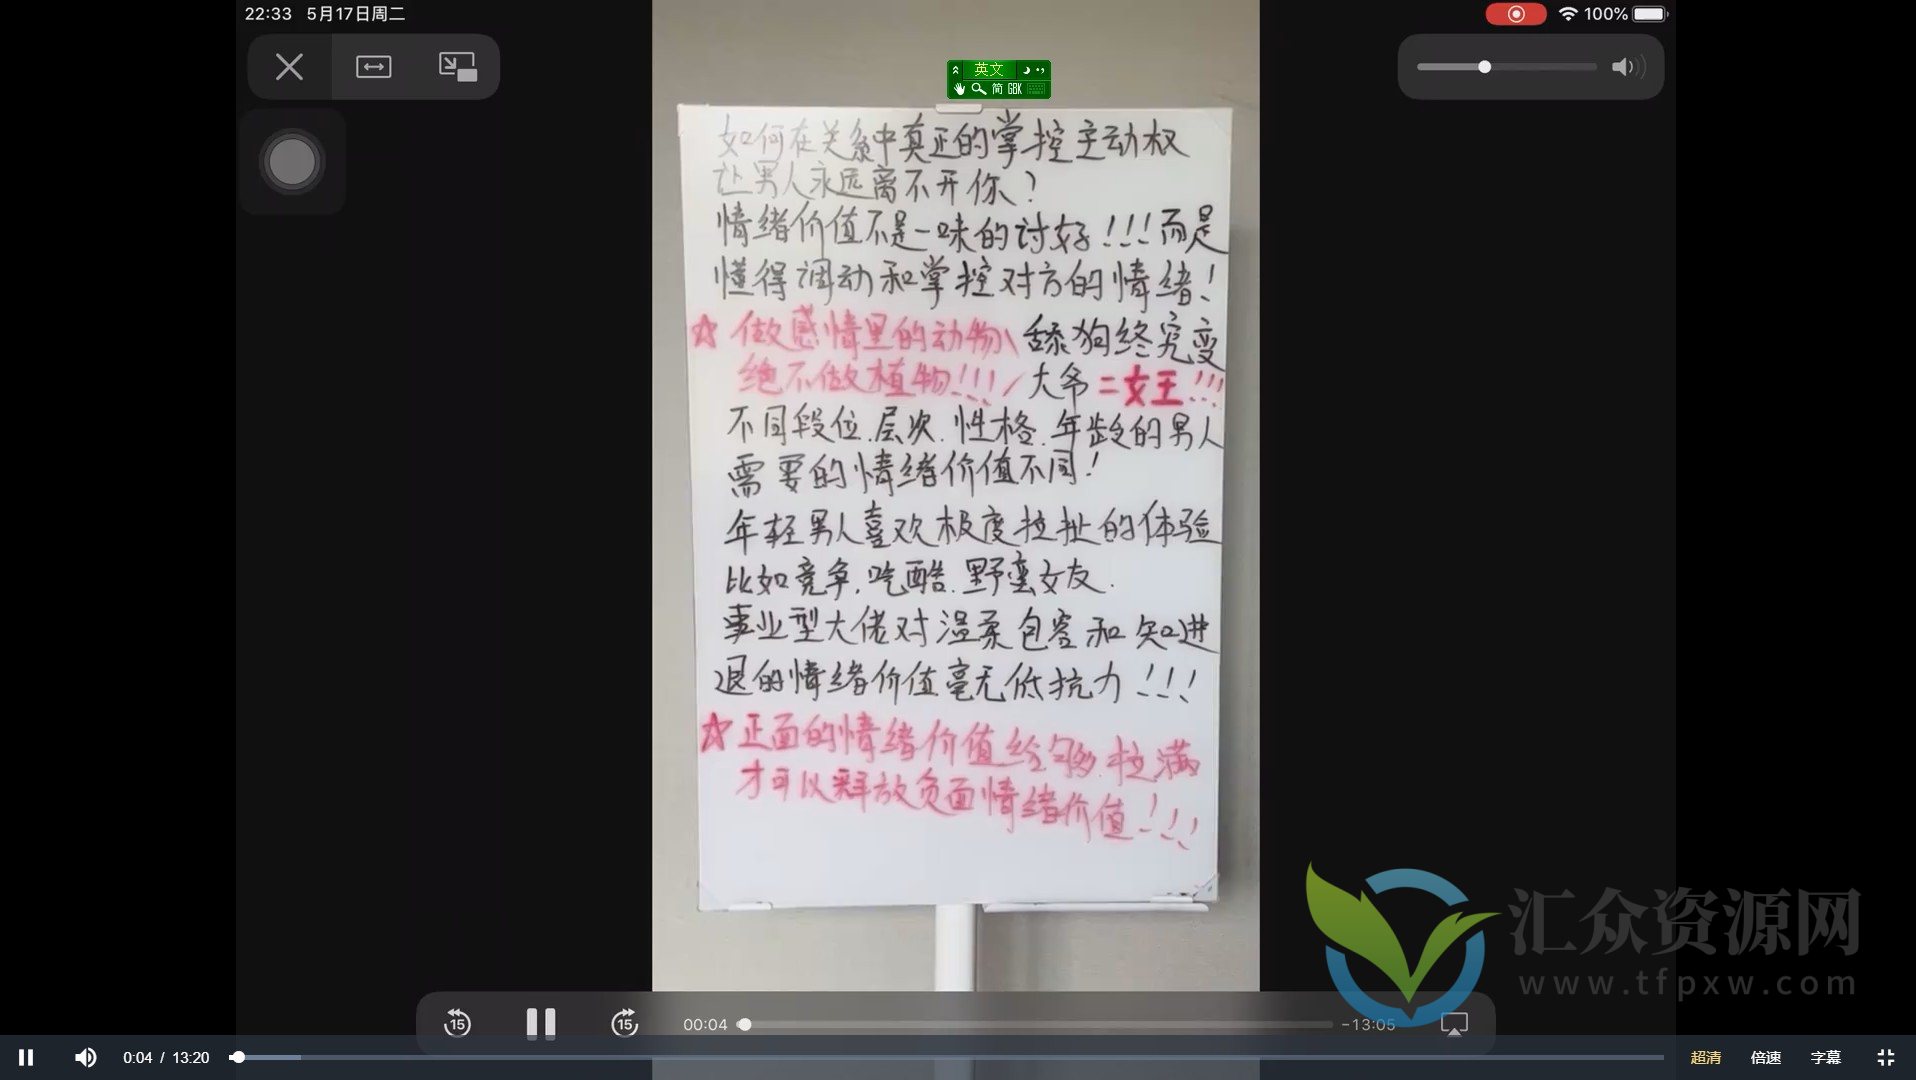 22:33 5月17日周二
100%
英文
简 GBK
如何在关系中真正的掌控主动权
让男人永远离不开你？
情绪价值不是一味的讨好！！！而是
懂得调动和掌控对方的情绪！
☆ 做感情里的动物 舔狗终究变
绝不做植物！！！ 大爷=女王！！！
不同段位.层次.性格.年龄的男人
需要的情绪价值不同！
年轻男人喜欢极度拉扯的体验
比如竞争.吃醋.野蛮女友.
事业型大佬对温柔包容和知进
退的情绪价值毫无低抗力！！！
☆ 正面的情绪价值给够.拉满
才可以释放负面情绪价值！！！
汇众资源网
www.tfpxw.com
15 15 00:04 -13:05
0:04 / 13:20 超清 倍速 字幕